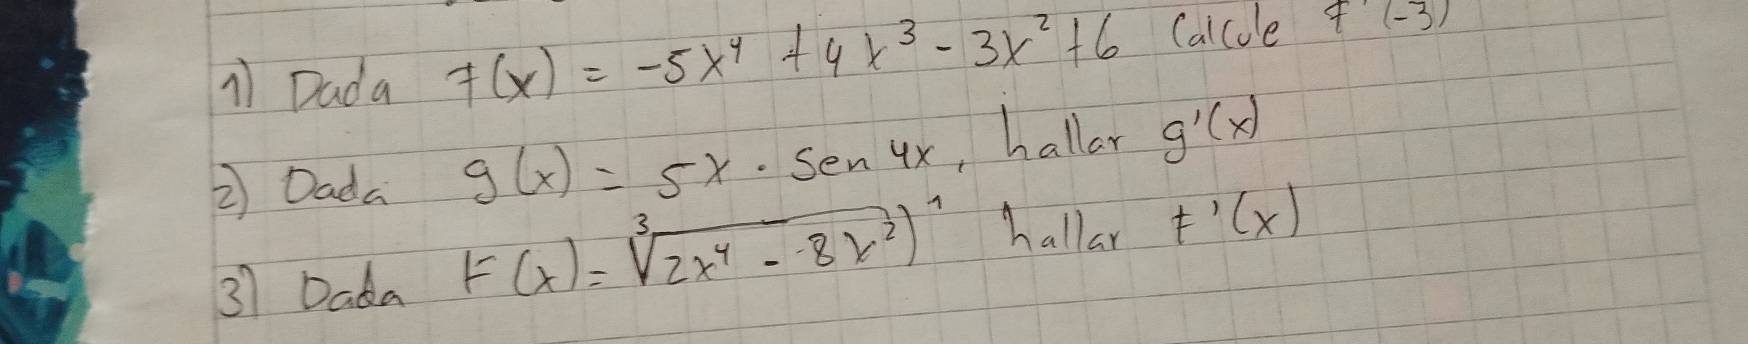 1) Dada f(x) = -5x⁴ + 4x³ - 3x² + 6 Calcule f'(-3)
2) Dada g(x) = 5x · Sen 4x, hallar g'(x)
3) Dada F(x) = ∛(2x⁴ - 8x²)¹ hallar f'(x)